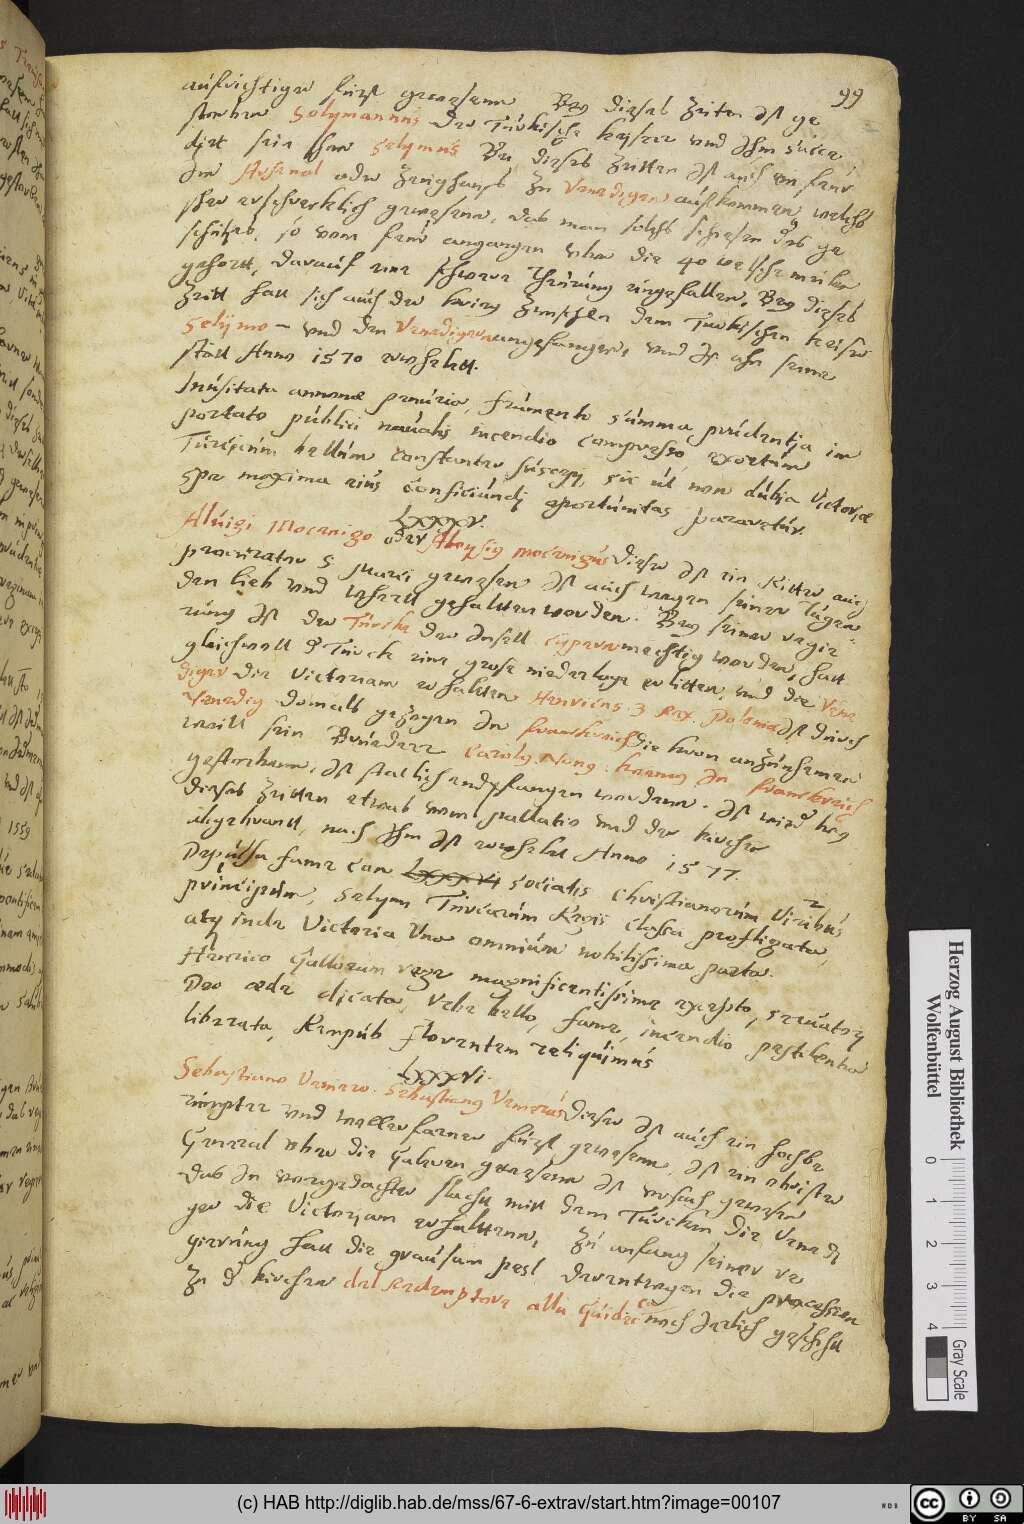 99
aufrichtiger fürst gewesenn Bey dieser Zeiten ist ge
storben Solymannus der Türkische keyser und ihm succe
dirt sein sohn Selymus Bei dieser Zeitten ist auch ein feur
Im Arsenal oder Zeughauß Zu Venedigen außkommen, welches
so erschrecklich gewesenn, das man solch schiesen des ge
schützes, so vom feur angangen uber die 40 welsche meilen
gehortt, darauf eine schwere Theurung eingefallen, Bey dieser
Zeitt hatt sich auch der krieg Zwischen dem Turkischen keiser
Selijmo und den Venedigern angefangen, und ist ahn seine
statt Anno 1570 erwehlett.
Inusitata annonae penuria, frumento summa prudentia im
portato publici navalis incendio compresso exortum
Turcicum bellum constanter suscepj, sic ut non dubia Victoriae
spe maxima eius conficiundj oportunitas pararetur.
LXXXV.
Aluigi Mocenigo oder Aloysig mocenigus Dieser ist ein Ritter auch
procurator S Marci gewesen ist auch wegen seiner Tugen
den lieb und wehrtt gehaltten worden. Bey seiner regie
rung ist der Türcke der Insell Cypern mechtig worden, hatt
gleichwoll d Türcke eine grose niederlage erlitten, und die Vene
diger die Victoriam erhalten Henricus 3 Rex Poloniae ist durch
Venedig domals gezogen In Franckreich die kron anzunhemen
weill sein Bruder Carolg Nong konnig In Franckreich
gestorbenn, ist stattlich endpfangen wordenn. Ist wird bey
dieser Zeitten etwas vom pallatio und der kirchen
abgebrantt, nach Ihm ist erwehlet Anno 1577.
Depulsa fame cum socialis Christianorum Viribus
principum, Selym Turcarum Regis classa profligata,
atq inde Victoria Uno omnium nobilissima parta.
Henrico Gallorum rege magnificentissime excepto, servatorj
Deo aede dicata, Urbe bello, fame, incendio pestilentia
liberata, Rempub florentem reliquimus
LXXXVI.
Sebastiano Veniero. Sebastiang Venerius Dieser ist auch ein hochbe
rümpter und wollerfarner fürst gewesenn, ist ein obrister
General uber die Galeren gewesenn ist ursach gewesen
das In vorgedachter slacht mitt dem Türcken die Venedi
ger die Victoriam erhalttenn, Zu anfang seiner re
gierung hatt die grausam pest darentwegen die processen
Zu d kirchen del Redemptore alla Guidecca noch Jerlich geschicht
(c) HAB http://diglib.hab.de/mss/67-6-extrav/start.htm?image=00107
Herzog August Bibliothek
Wolfenbüttel
0 1 2 3 4
Gray Scale
WDB
CC BY SA